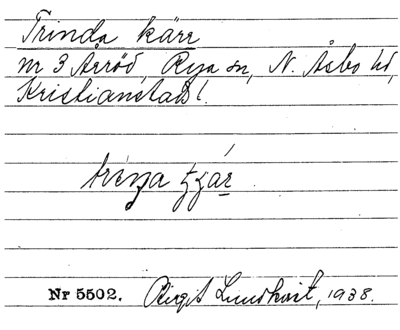 Trinda kärr
nr 3 Årröd, Rya sn, N. Åsbo hd,
Kristianstads l.
Nr 5502. Birgit Lundkvist, 1938.